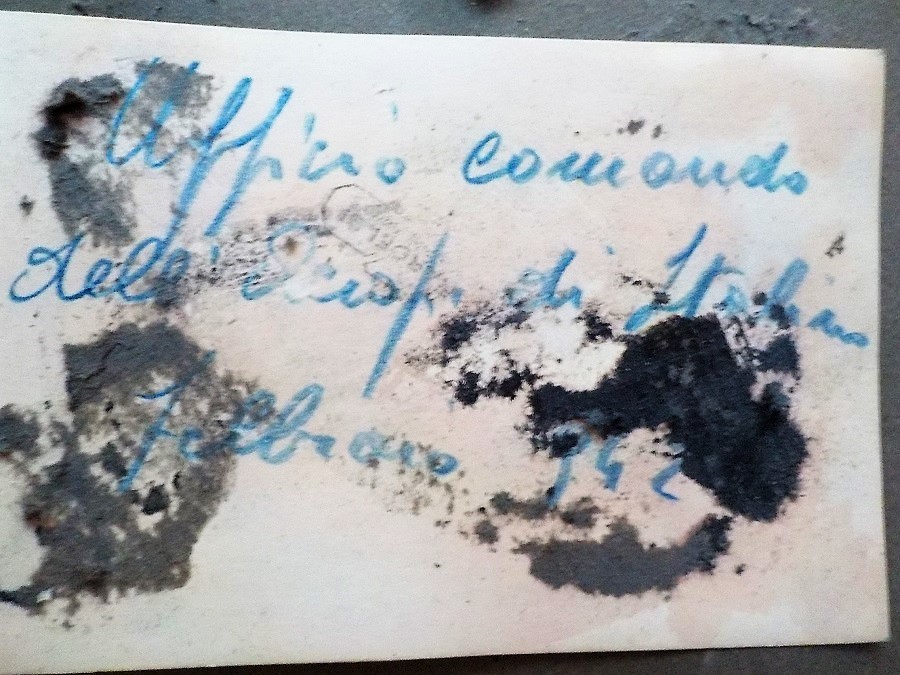 Ufficio comando
dell'Aerop. di Stalino
Febbraio 942